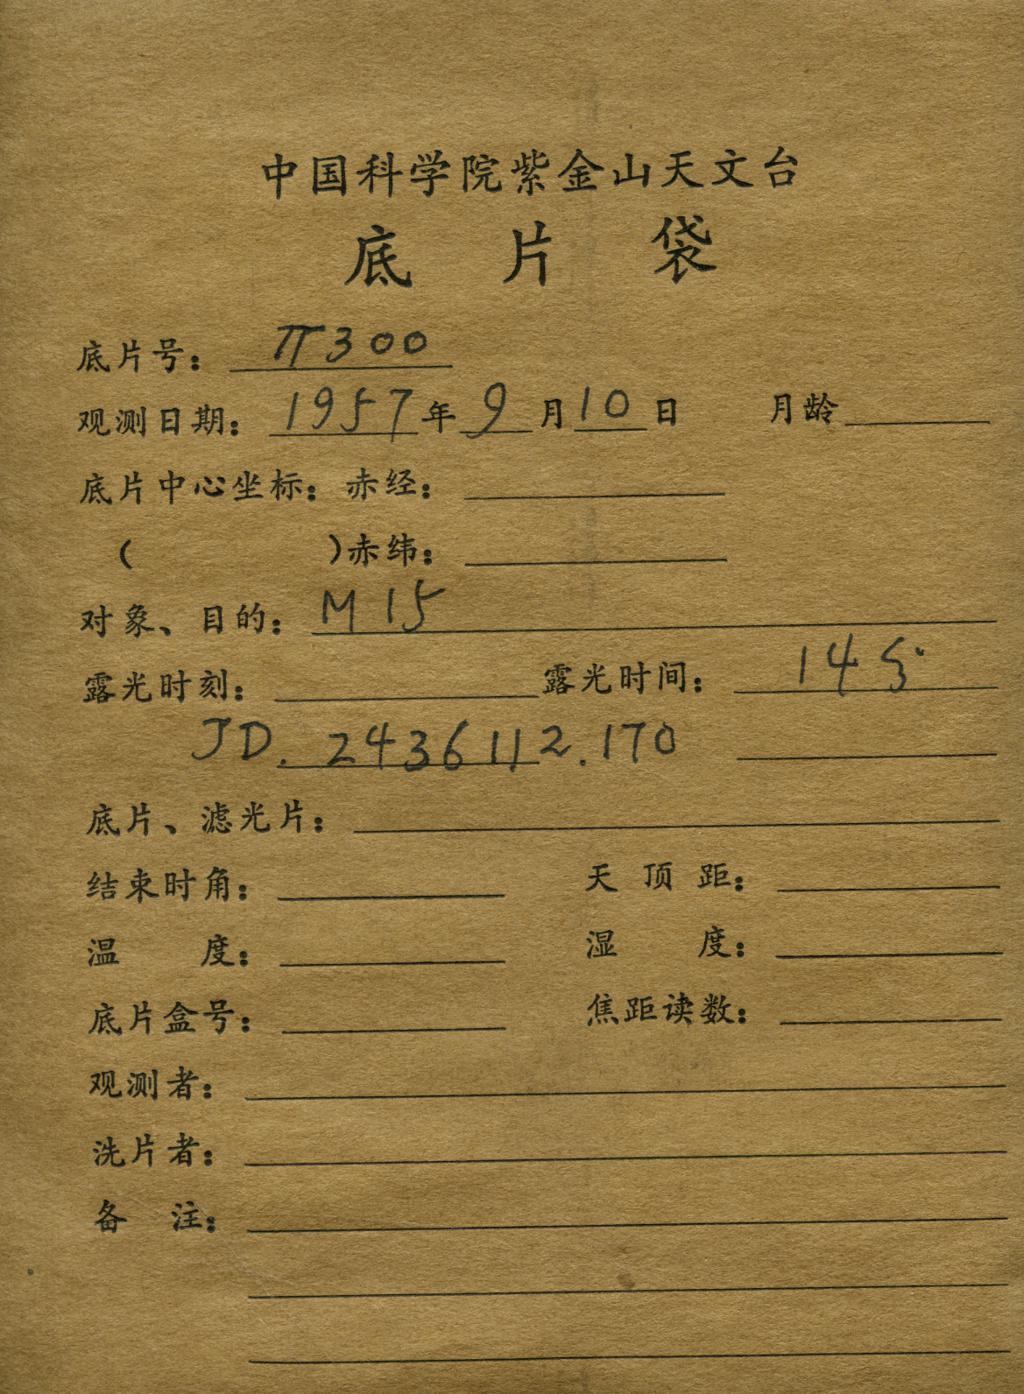 中国科学院紫金山天文台
底 片 袋
底片号： π300
观测日期： 1957 年 9 月 10 日 月龄
底片中心坐标：赤经：
( )赤纬：
对象、目的： M15
露光时刻： 露光时间： 14分
JD. 2436112.170
底片、滤光片：
结束时角： 天 顶 距：
温 度： 湿 度：
底片盒号： 焦距读数：
观测者：
洗片者：
备 注：